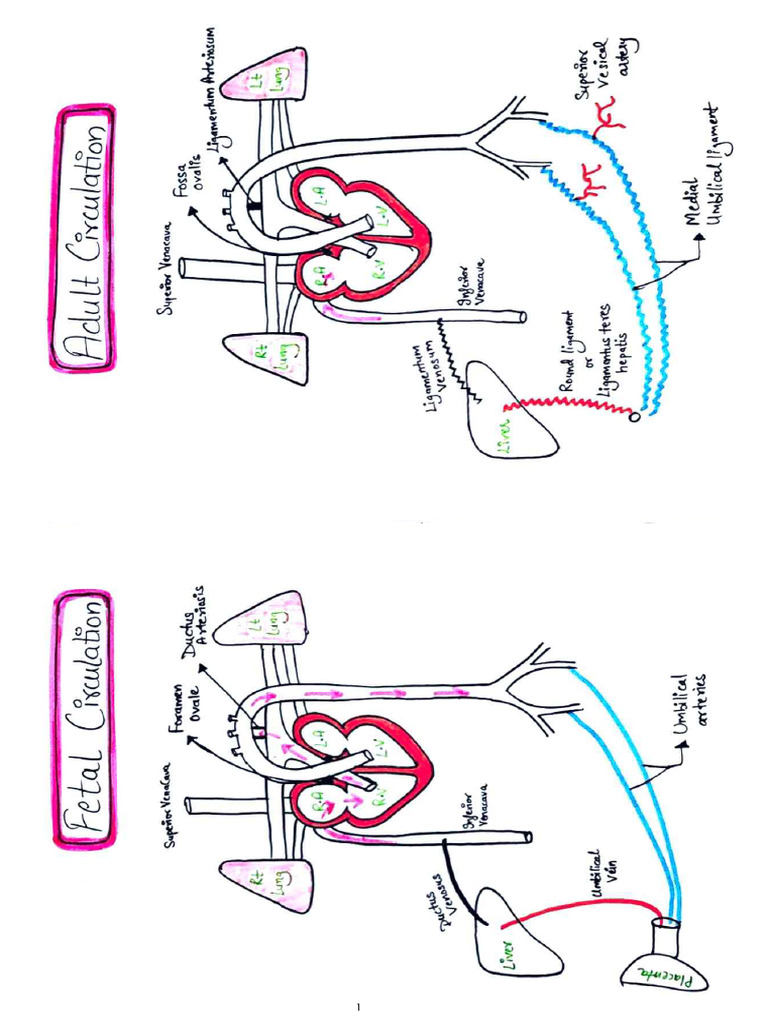 Fetal Circulation
Superior VenaCava
Foramen
Ovale
Ductus
Arteriosis
Rt
Lung
Lt
Lung
R.A
L.A
R.V
L.V
Inferior
Venacava
Ductus
Venosus
Liver
Umbilical
Vein
Umbilical
arteries
Placenta
Adult Circulation
Superior Venacava
Fossa
ovalis
Ligamentum Arteriosum
Rt
Lung
Lt
Lung
R.A
L.A
R.V
L.V
Inferior
Venacava
Ligamentum
venosum
Liver
Round ligament
or
Ligamantus teres
hepatis
Superior
Vesical
artery
Medial
Umbilical ligament
1